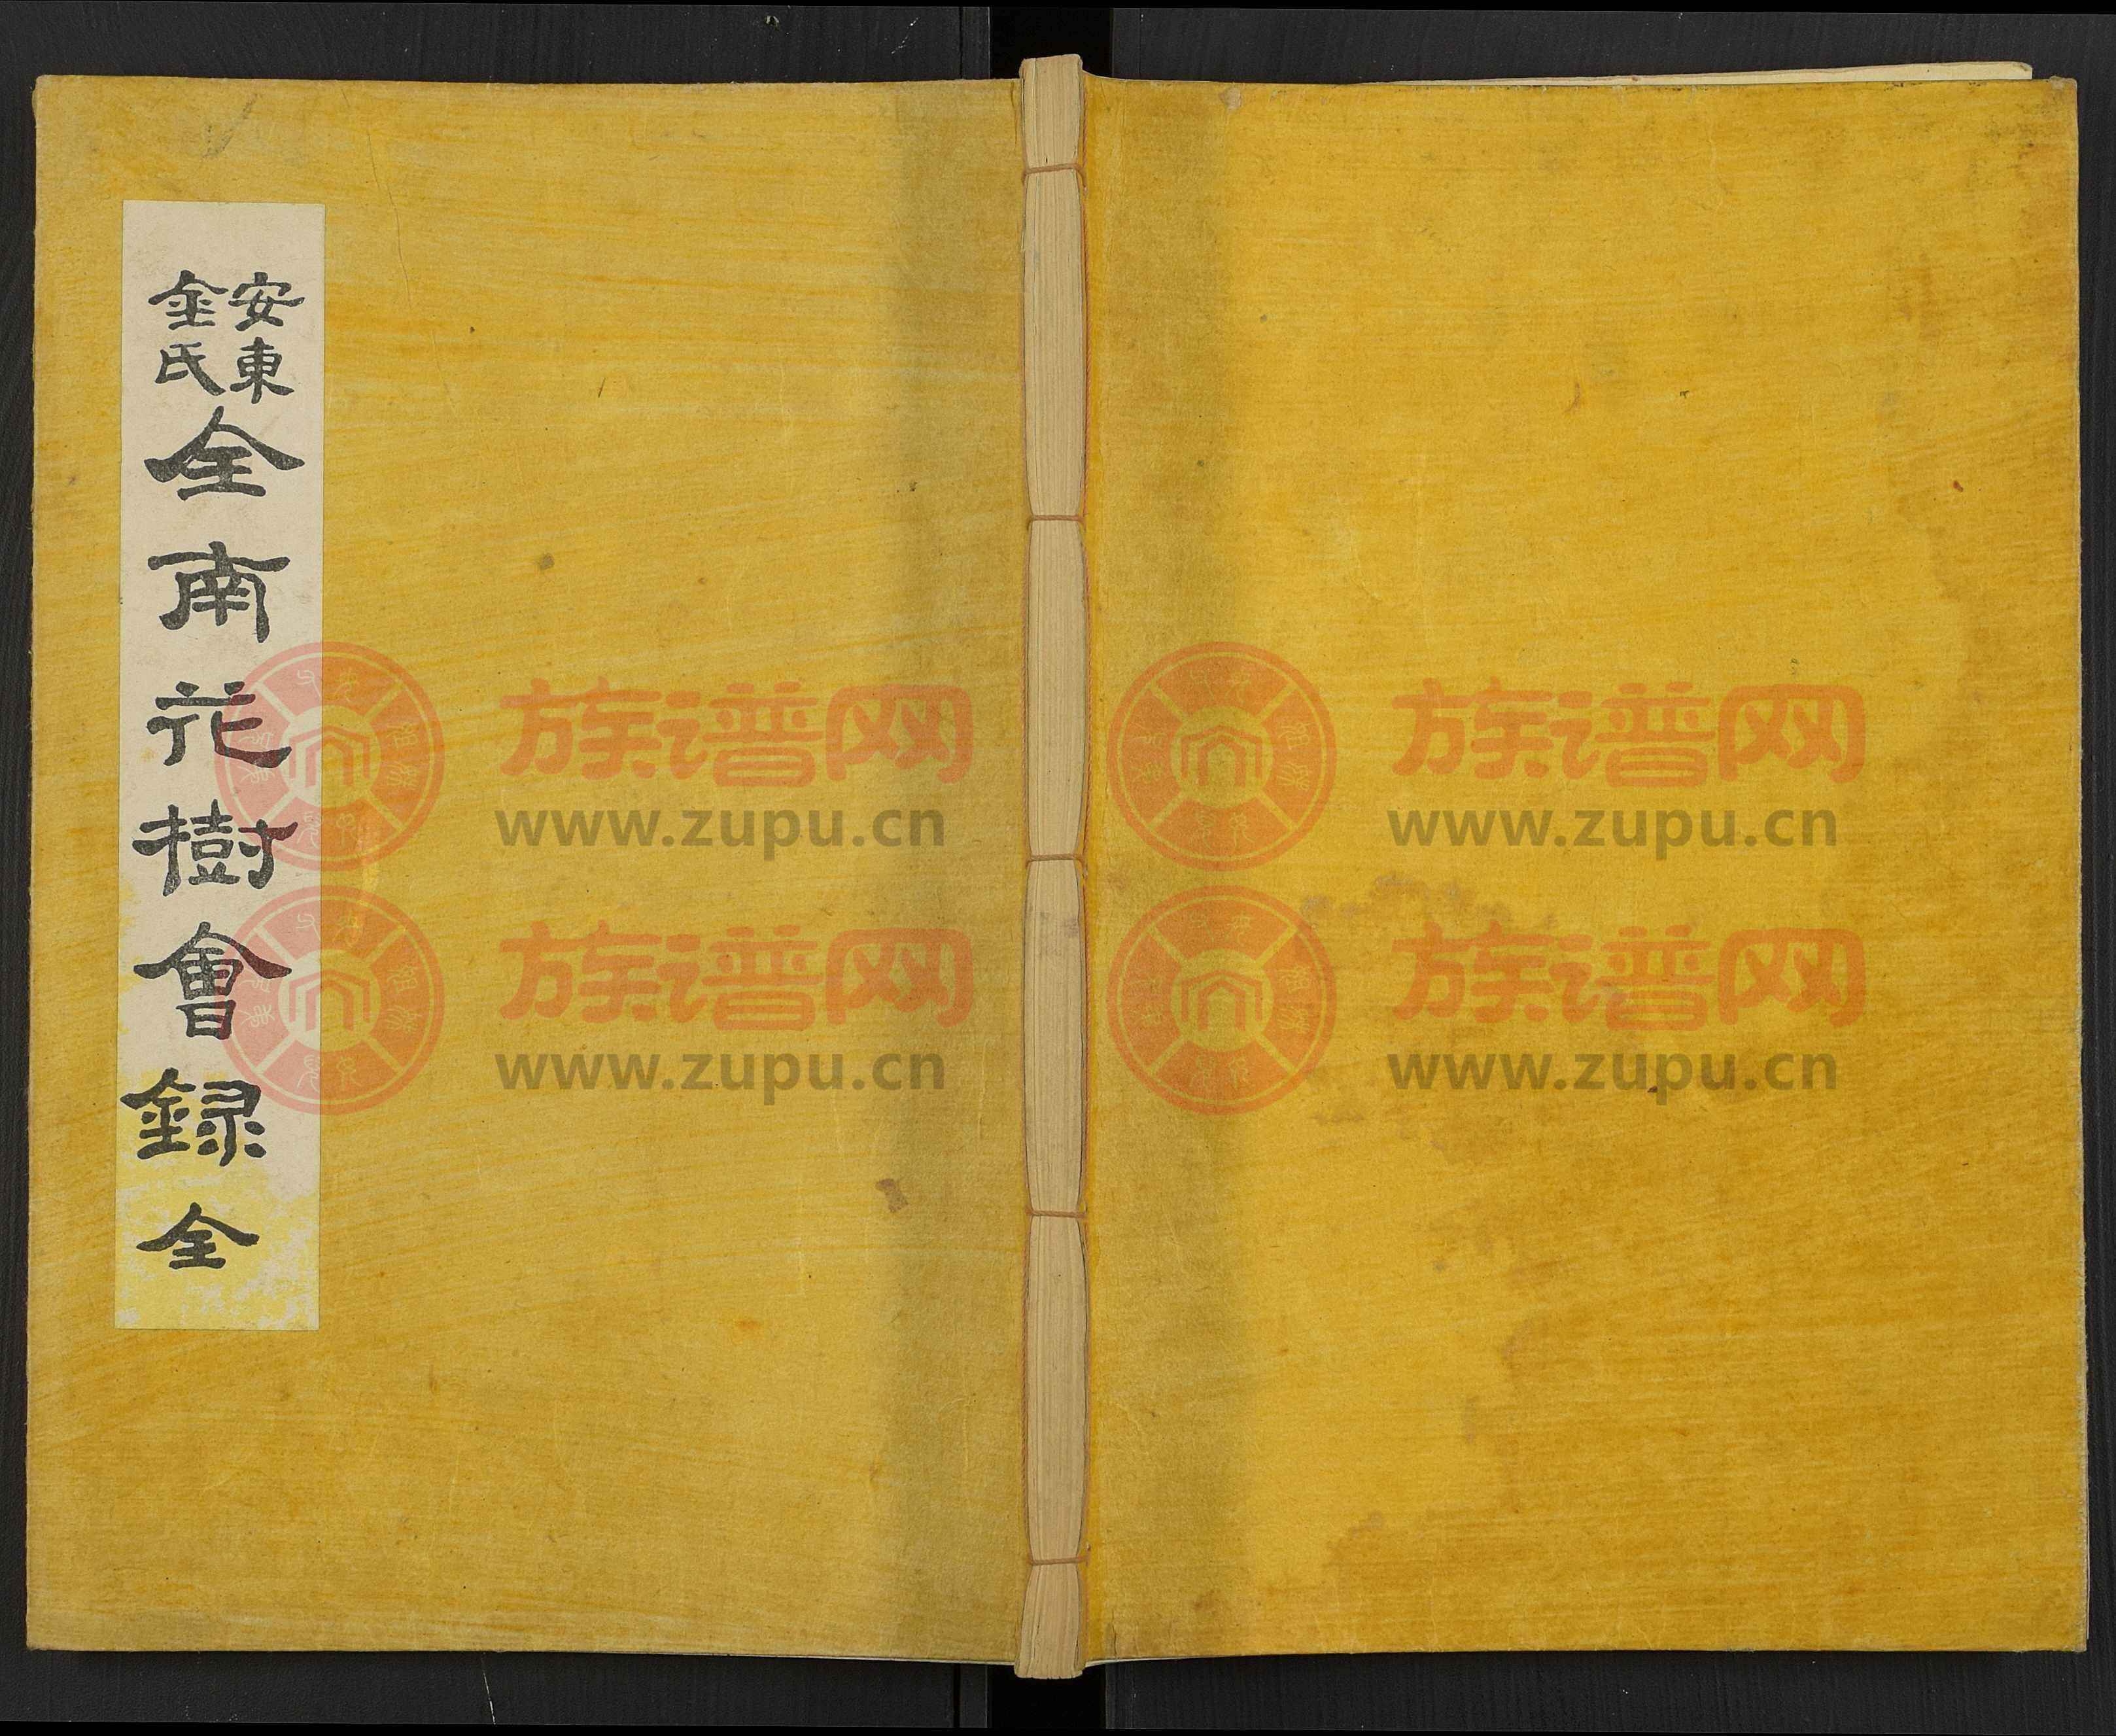 安東
金氏
全南花樹會録 全
族谱网
www.zupu.cn
族谱网
www.zupu.cn
族谱网
www.zupu.cn
族谱网
www.zupu.cn